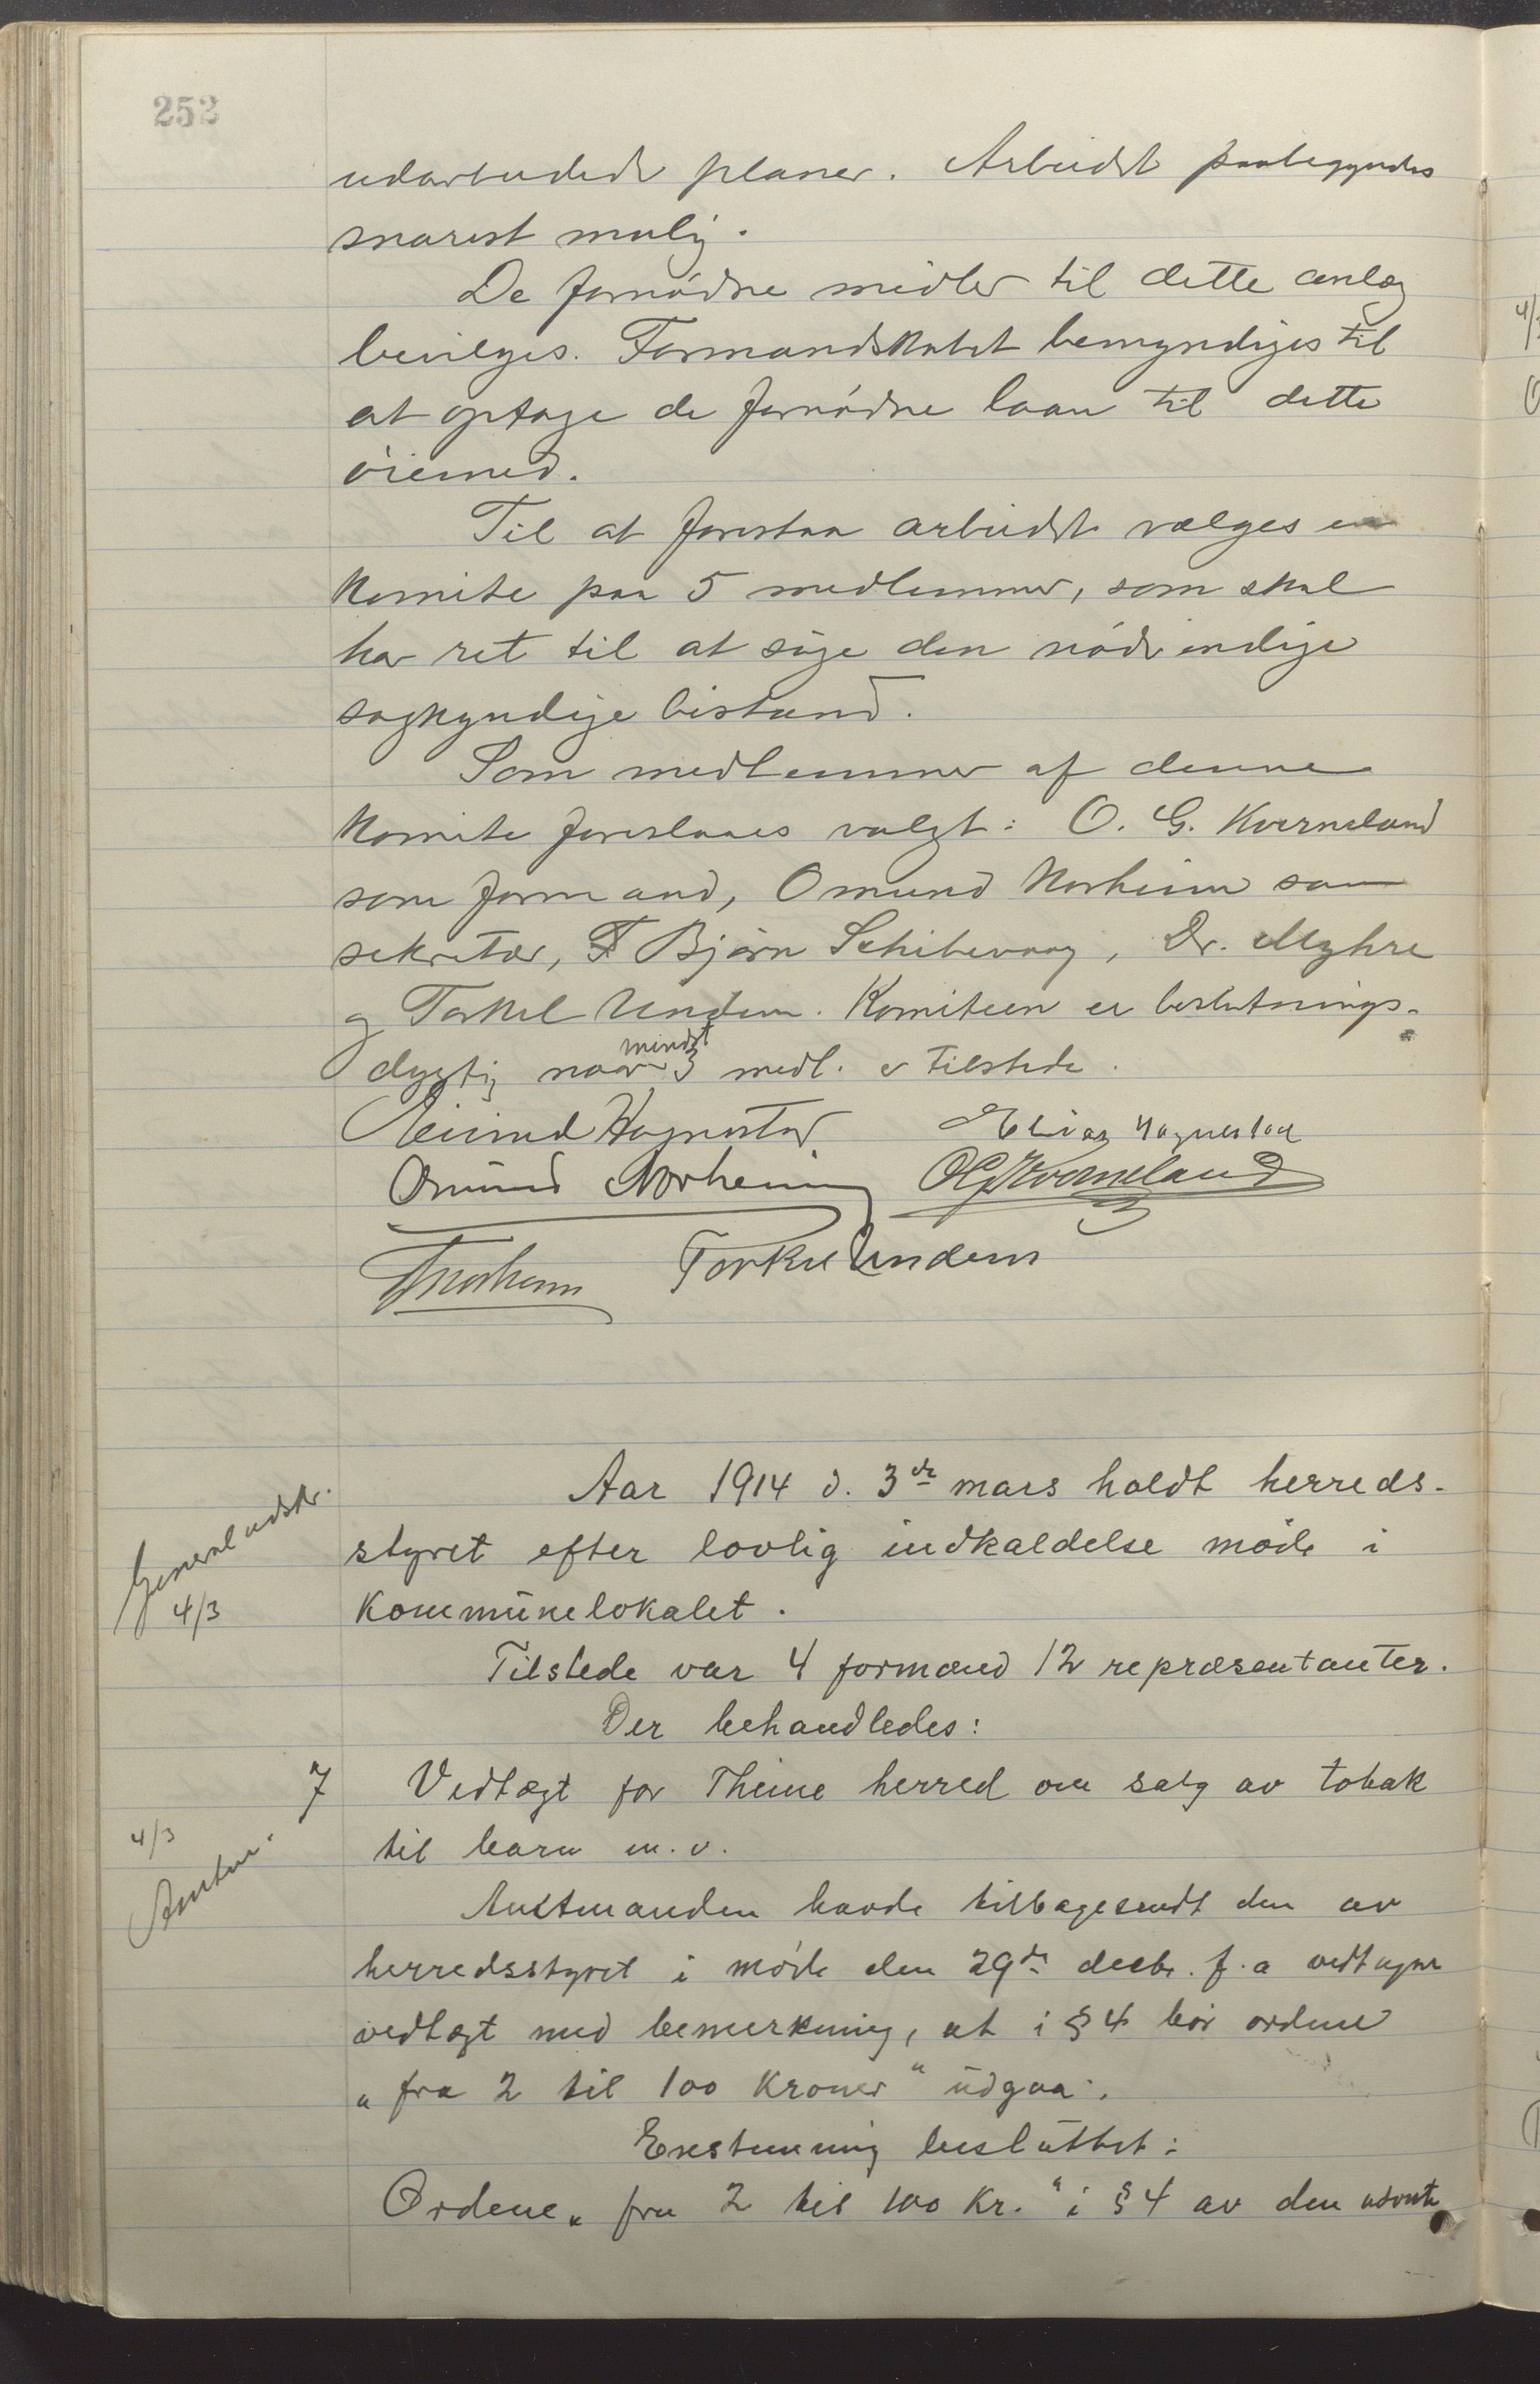 252
udarbeidede planer. Arbeidet paabegyndes
snarest mulig.
De fornødne midler til dette anlæg
bevilges. Formandskabet bemyndiges til
at optage de fornødne laan til dette
øiemed.
Til at forestaa arbeidet vælges en
komite paa 5 medlemmer, som skal
ha ret til at søge den nødvendige
sagkyndige bistand.
Som medlemmer af denne
komite foreslaaes valgt: O. G. Kverneland
som formand, Omund Norheim som
sekretær, Bjørn Schibevaag, Dr. Myhre
og Torkel Undem. Komiteen er beslutnings-
dygtig naar mindst 3 medl. er tilstede.
Eivind Hagnestad Elias Hognestad
Omund Norheim OG Kverneland
Norheim Torkel Undem
Generalindstr.
4/3
Aar 1914 d. 3de mars holdt herreds-
styret efter lovlig indkaldelse møde i
kommunelokalet.
Tilstede var 4 formænd 12 repræsentanter.
Der behandledes:
7 Vedtægt for Thime herred om salg av tobak
til barn m.v.
4/3
Amtm.
Amtmanden havde tilbagesendt den av
herredsstyret i møde den 29de decbr. f.a vedtagne
vedtægt med bemerkning, at i § 4 bør ordene
„fra 2 til 100 kroner" udgaa.
Enestemmig besluttet:
Ordene „fra 2 til 100 kr." i § 4 av den